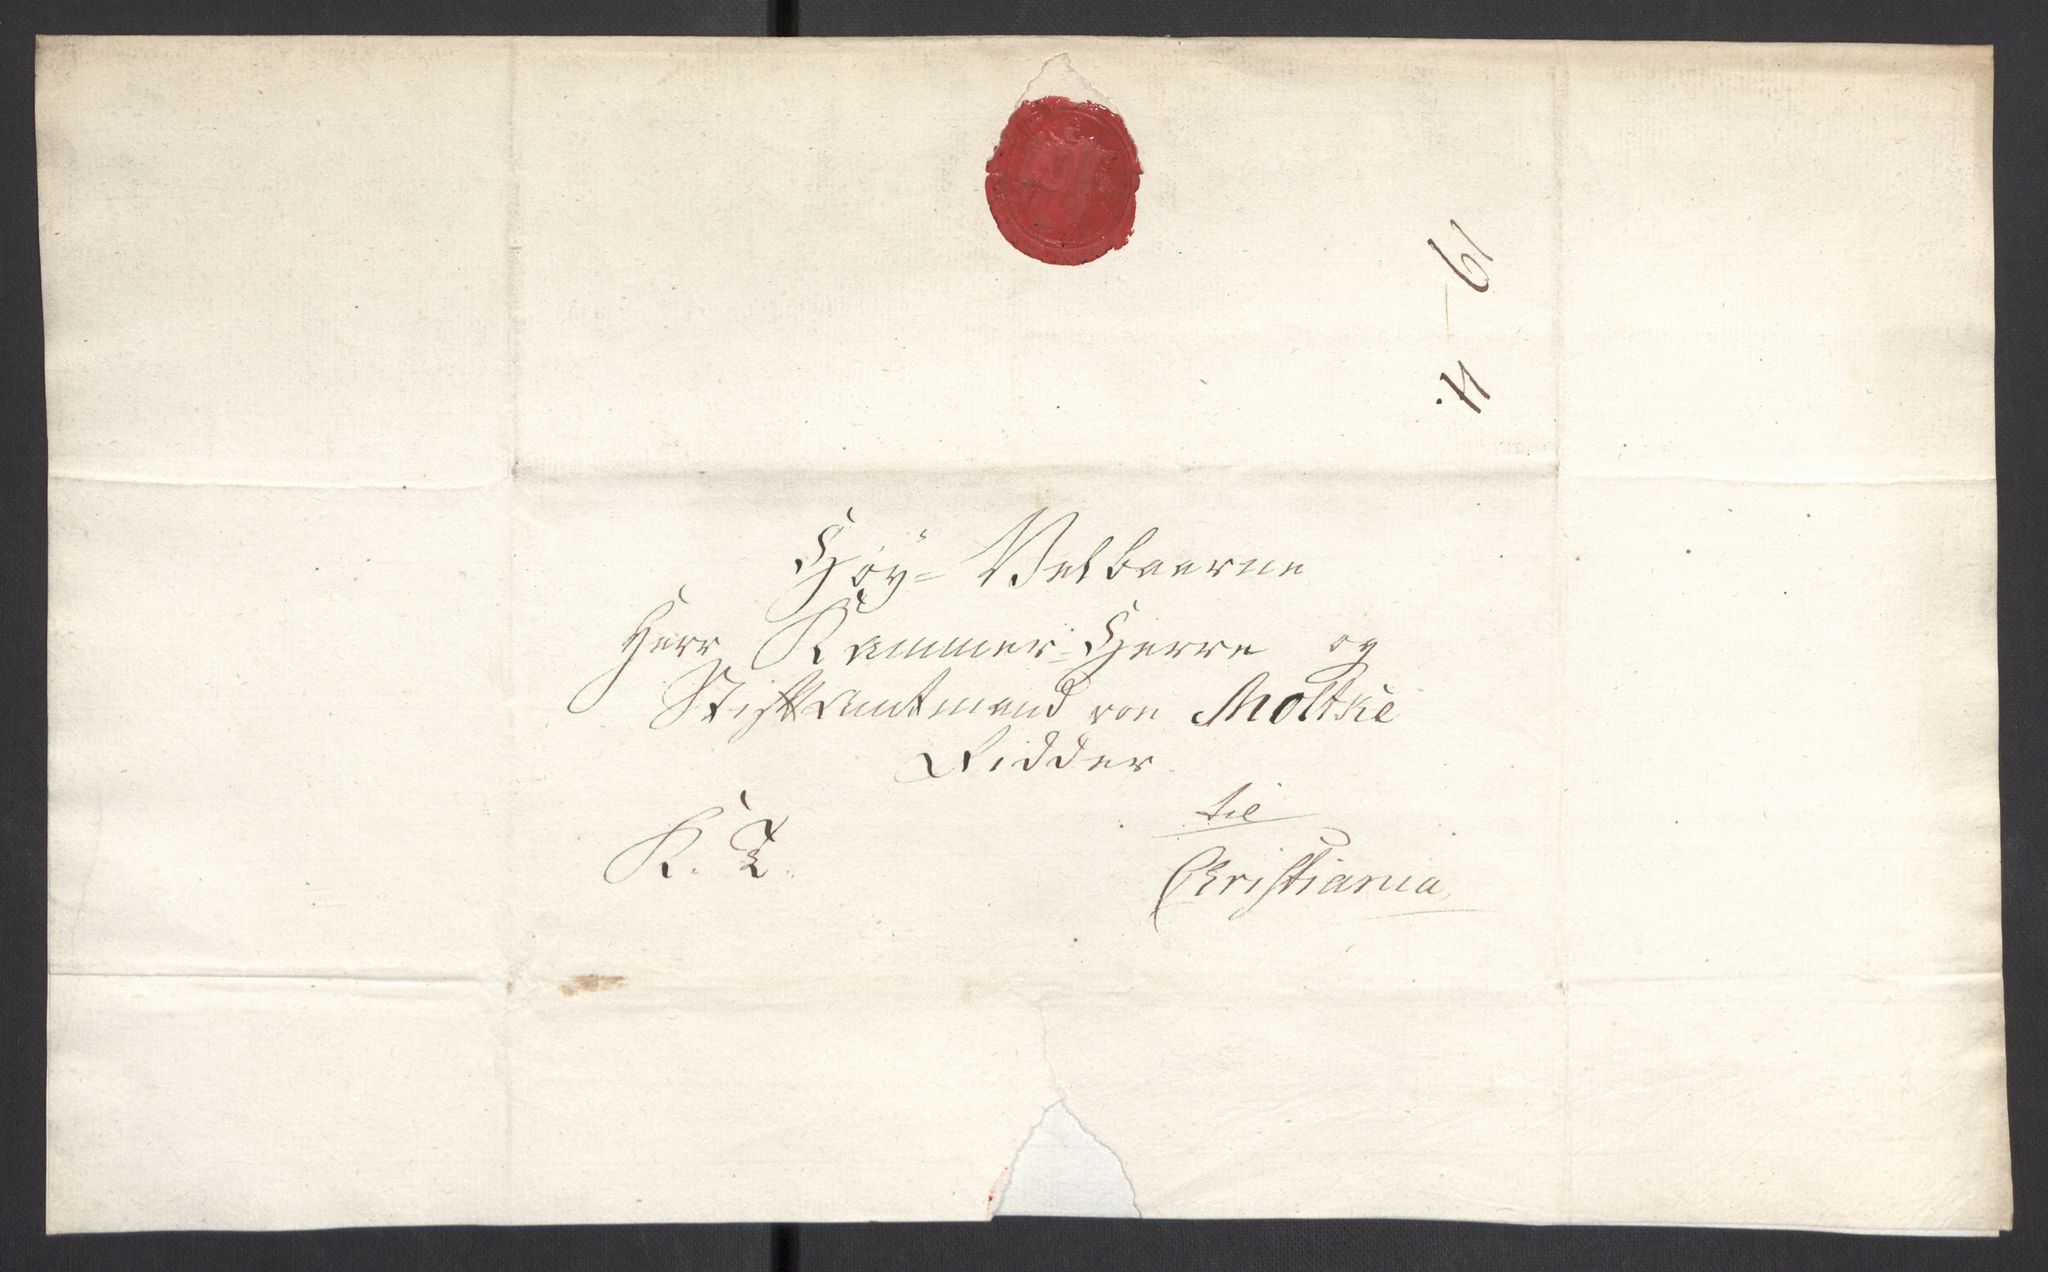 19 - 4.
Høy- Velbaarne
Herr Kammer-Herre og
Stiftamtmand von Moltke
Ridder
K. T.
til
Christiania